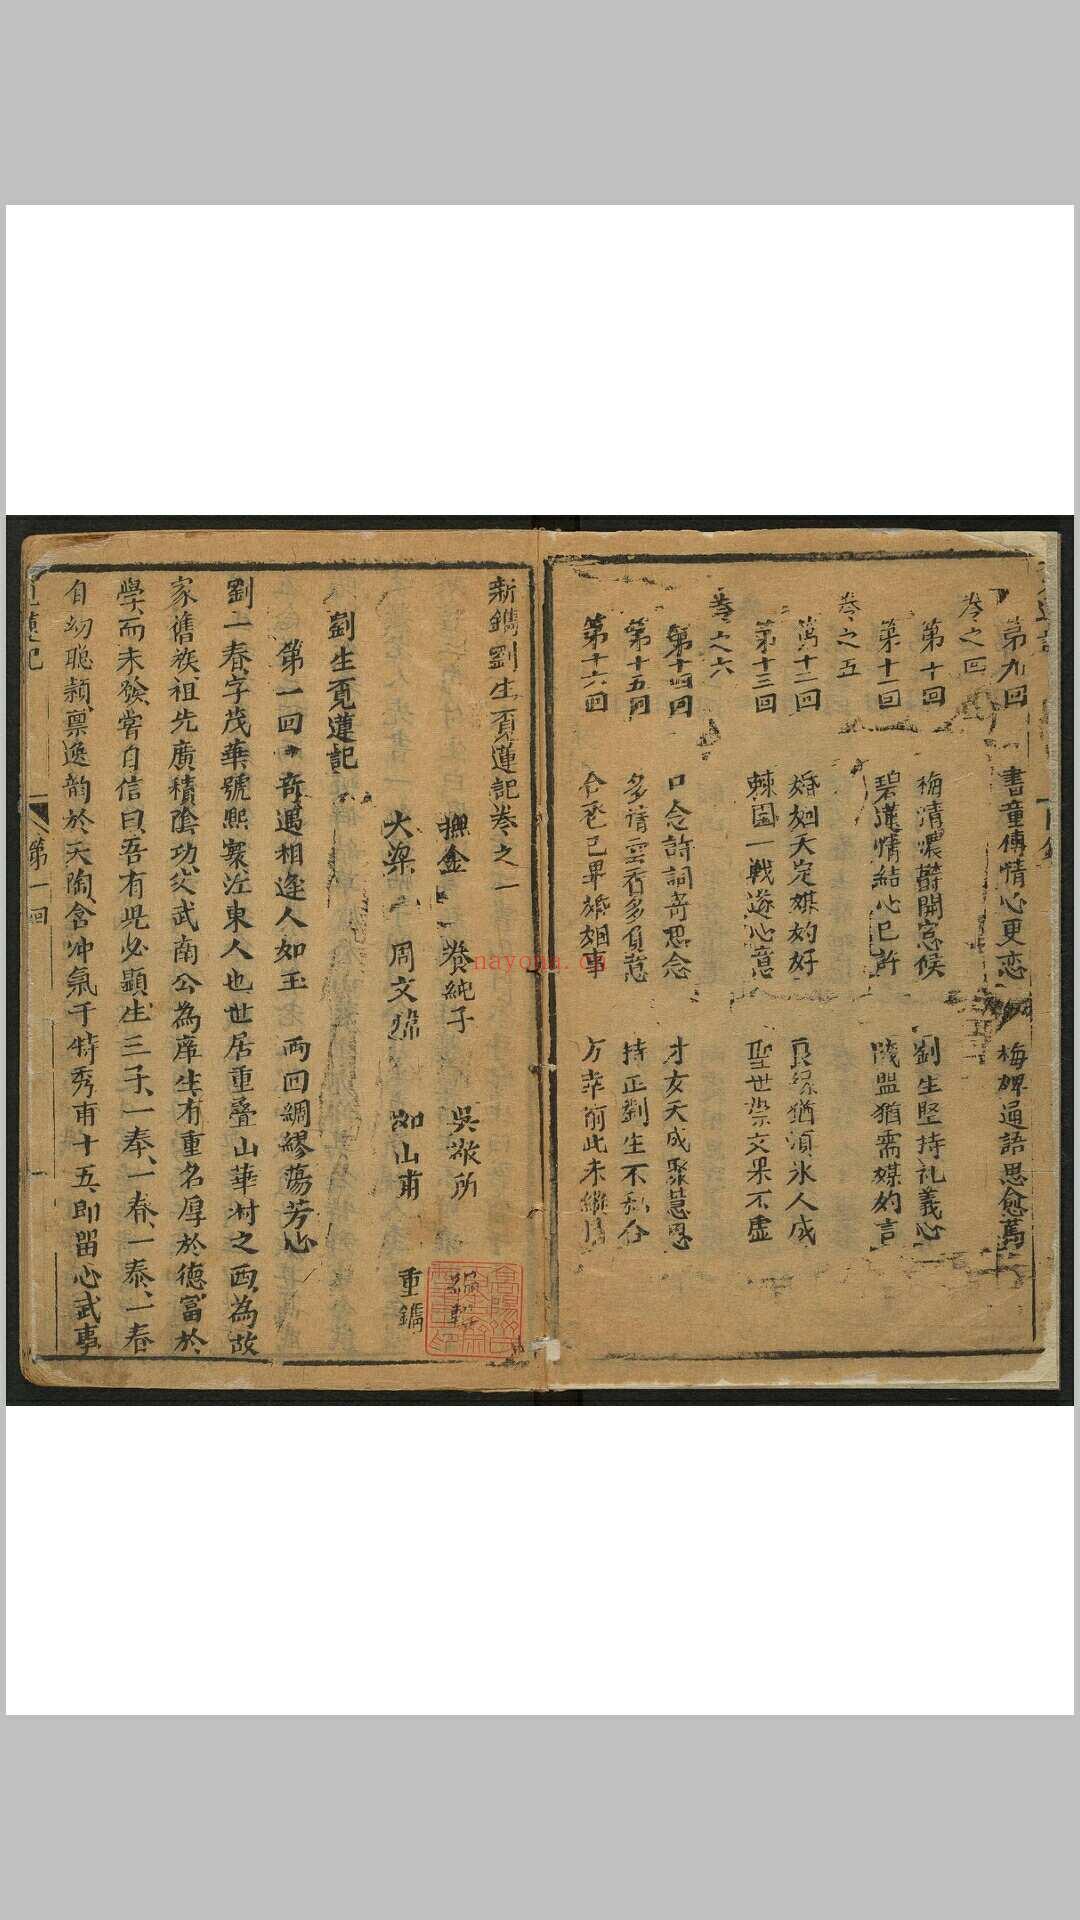 第九回 書童傳情心更恋 梅婢通語思愈篤
卷之四
第十回 梅清濃欝開窓候 劉生堅持礼義心
第十一回 碧蓮情結心已許 淺盟猶需媒妁言
卷之五
第十二回 婚姻天定媒妁好 良緣猶湏氷人成
第十三回 棘囯一戰遂心意 聖世崇文果不虚
卷之六
第十四回 口念詩詞寄思念 才女天成聚慧恩
第十五回 多情云看多負意 持正劉生不私合
第十六回 合卺已畢婚姻事 方幸前此未
新鐫劉生覓蓮記卷之一
撫金 養純子 吳敬所 編輯
大梁 周文煒 如山甫 重鐫
劉生覓蓮記
第一回 奇遇相逢人如玉 両回綢繆蕩芳心
劉一春字茂華號熙寰江東人也世居重叠山華村之西為故
家舊族祖先廣積陰功父武南公為庠生有重名厚於德富於
學而未發嘗自信曰吾有児必顯生三子一奉一春一泰一春
自幼聡頴禀逸韵於天陶含冲氣于特秀甫十五即留心武事
覓蓮記 第一回
nayona.cn